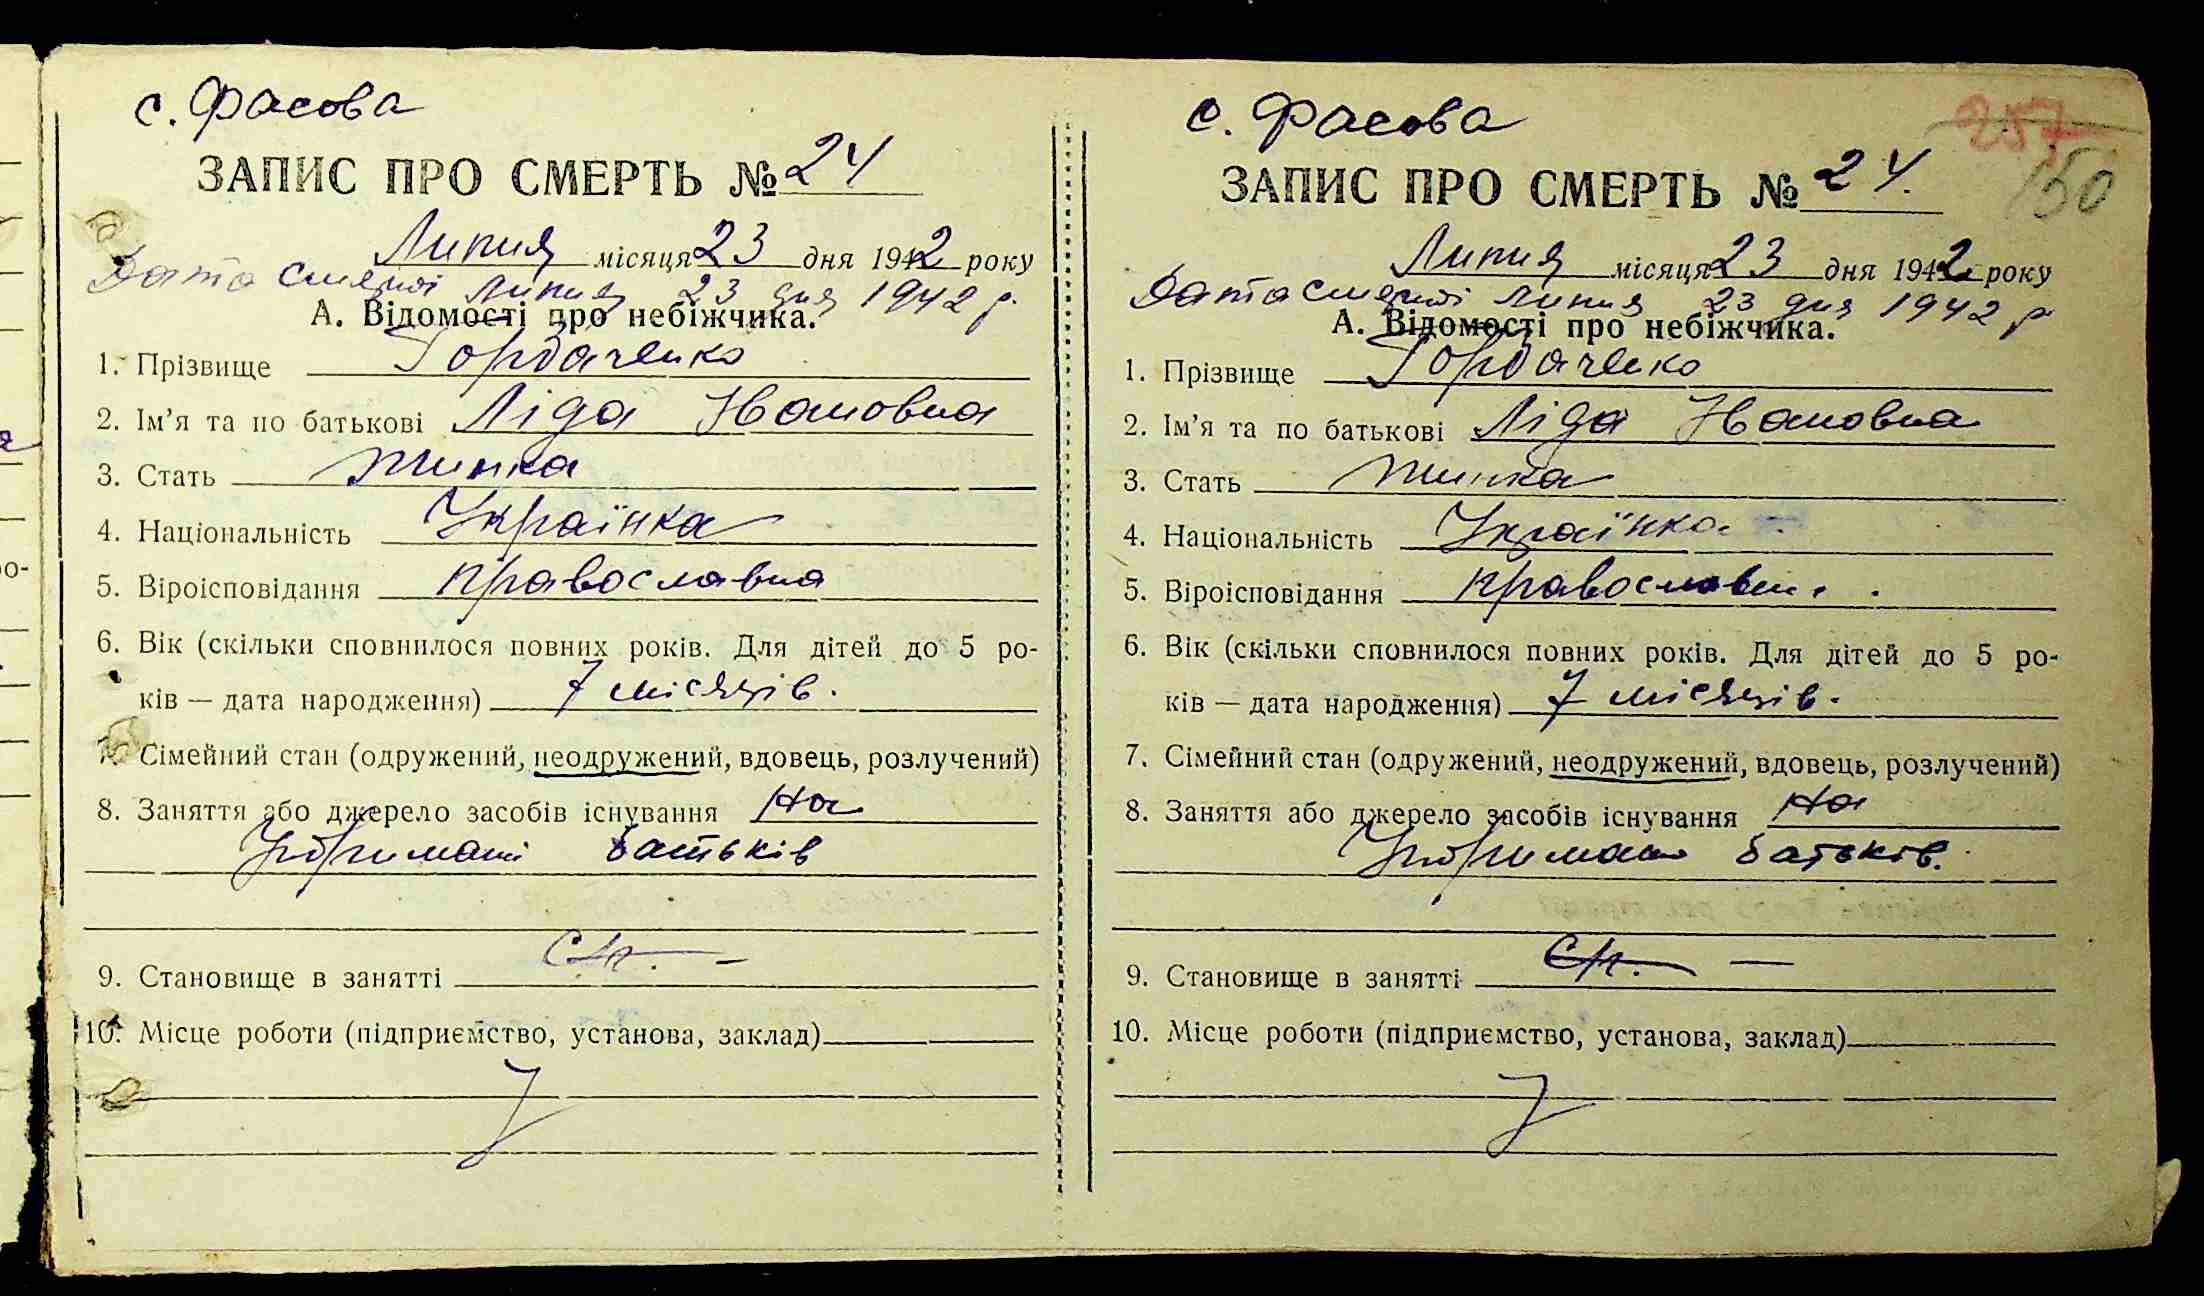 с. Фасова
ЗАПИС ПРО СМЕРТЬ № 24
Липня місяця 23 дня 1942 року
Дата смерті Липня 23 дня 1942 р.
А. Відомості про небіжчика.
1. Прізвище Горбаченко
2. Ім'я та по батькові Ліда Ивановна
3. Стать жинка
4. Національність Українка
5. Віроісповідання православна
6. Вік (скільки сповнилося повних років. Для дітей до 5 ро-
ків — дата народження) 7 місяців.
7. Сімейний стан (одружений, неодружений, вдовець, розлучений)
8. Заняття або джерело засобів існування на
утримані батьків
9. Становище в занятті —
10. Місце роботи (підприємство, установа, заклад)
с. Фасова
257
150
ЗАПИС ПРО СМЕРТЬ № 24.
Липня місяця 23 дня 1942 року
Дата смерті Липня 23 дня 1942 р
А. Відомості про небіжчика.
1. Прізвище Горбаченко
2. Ім'я та по батькові Ліда Ивановна
3. Стать жинка
4. Національність Українка
5. Віроісповідання православн.
6. Вік (скільки сповнилося повних років. Для дітей до 5 ро-
ків — дата народження) 7 місяців.
7. Сімейний стан (одружений, неодружений, вдовець, розлучений)
8. Заняття або джерело засобів існування на
утримані батьків.
9. Становище в занятті —
10. Місце роботи (підприємство, установа, заклад)